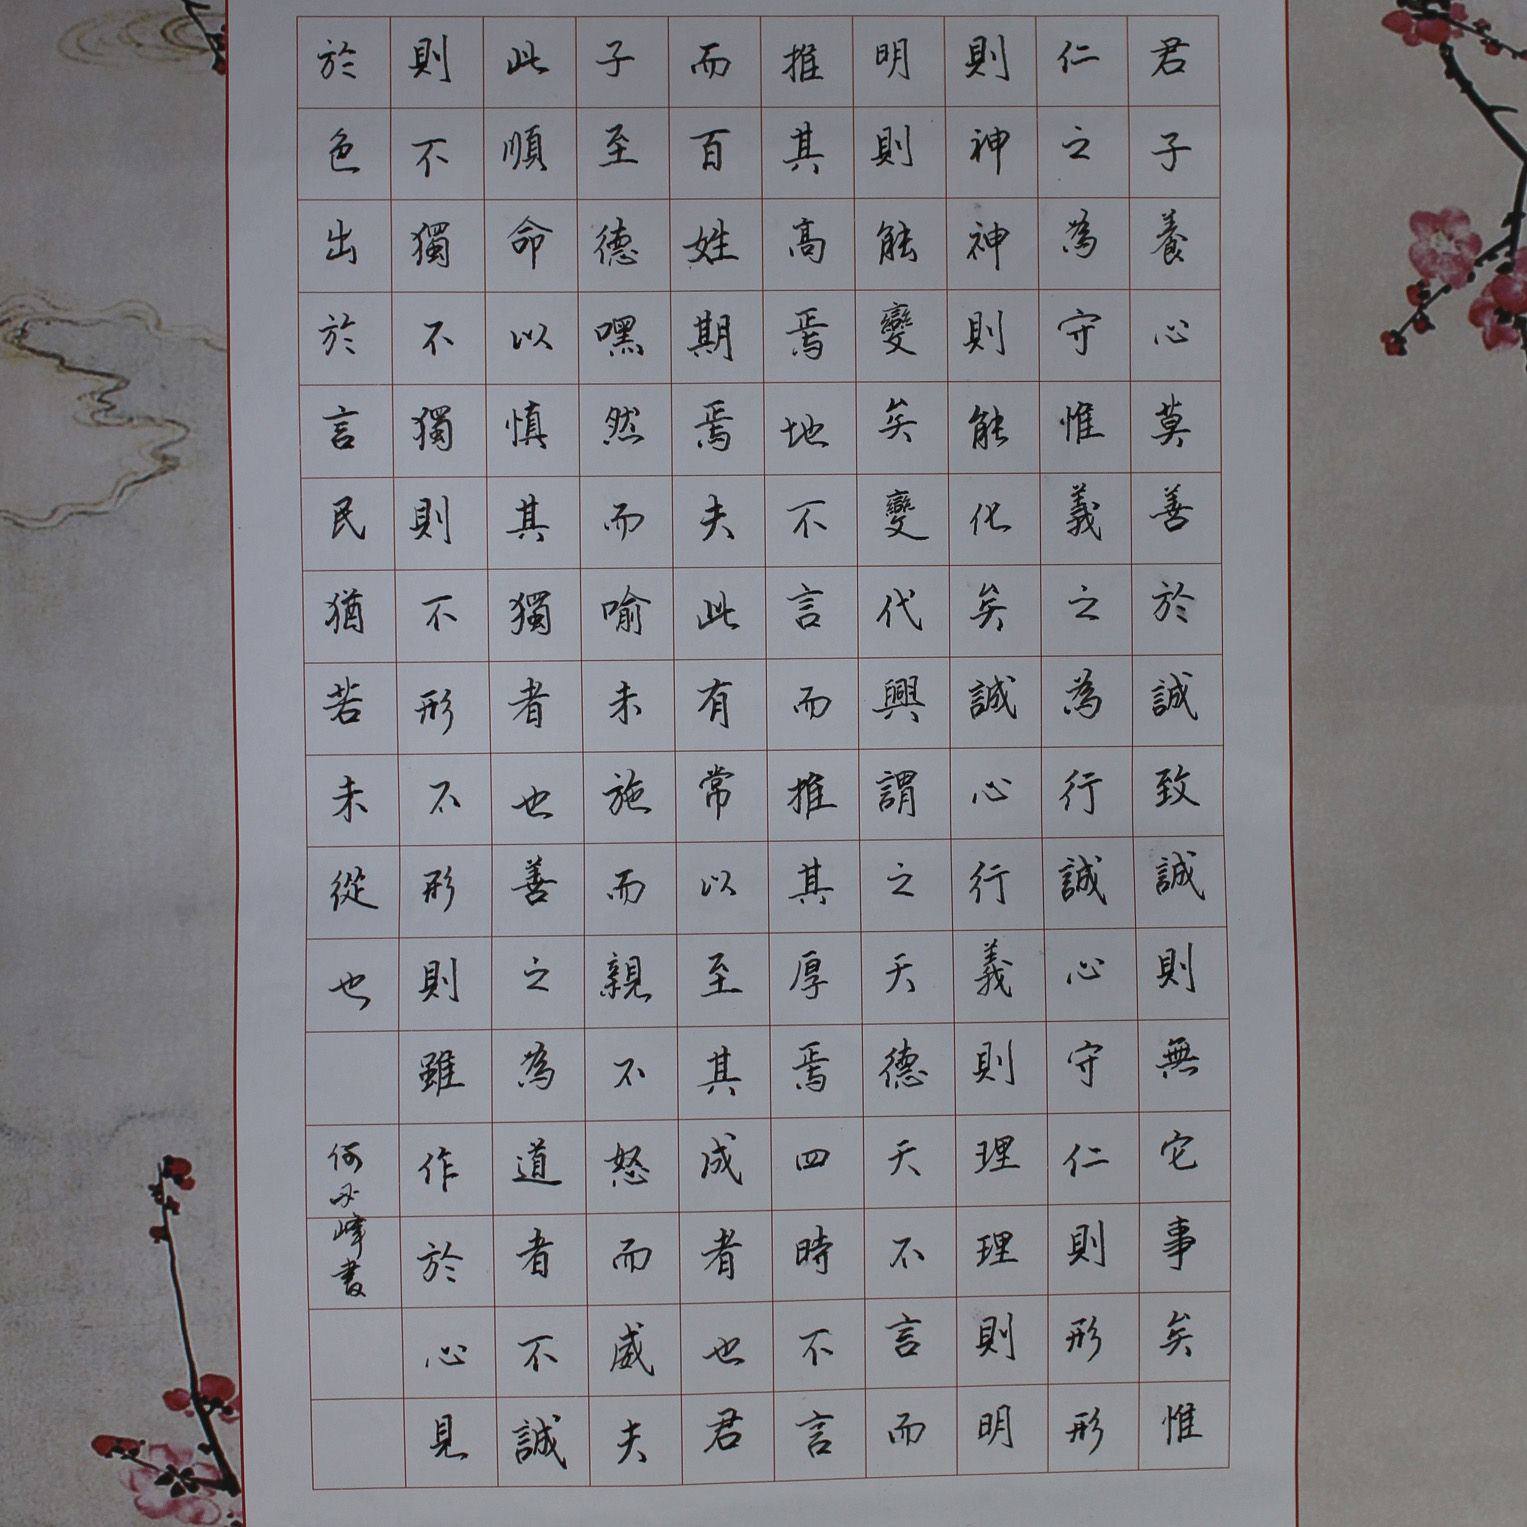 君子養心莫善於誠致誠則無它事矣惟
仁之為守惟義之為行誠心守仁則形形
則神神則能化矣誠心行義則理理則明明
明則能變矣變代興謂之天德天不言而
推其高焉地不言而推其厚焉四時不言
而百姓期焉夫此有常以至其成者也君
子至德嘿然而喻未施而親不怒而威夫
此順命以慎其獨者也善之為道者不誠
則不獨不獨則不形不形則雖作於心見
於色出於言民猶若未從也
何 峰書